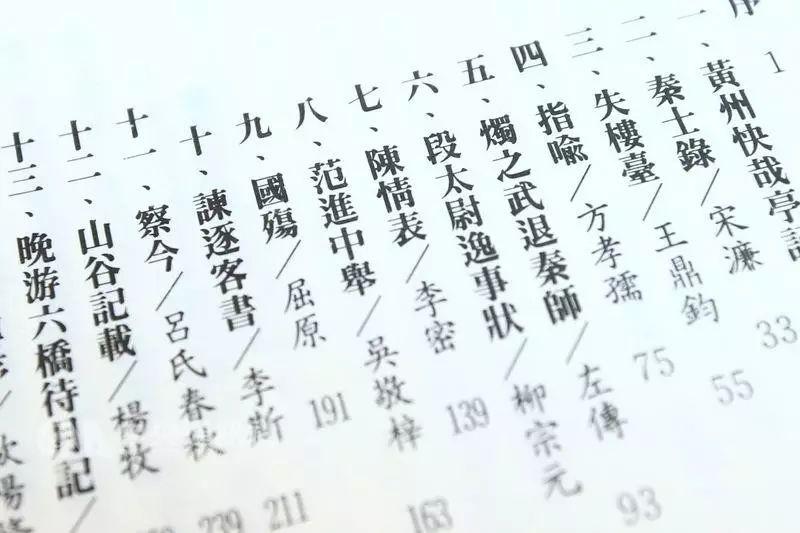 序 1
一、黃州快哉亭記
二、秦士錄/宋濂 33
三、失樓臺/王鼎鈞 55
四、指喻/方孝孺 75
五、燭之武退秦師/左傳 93
六、段太尉逸事狀/柳宗元
七、陳情表/李密 139
八、范進中舉/吳敬梓 163
九、國殤/屈原 191
十、諫逐客書/李斯 211
十一、察今/呂氏春秋 239
十二、山谷記載/楊牧
十三、晚游六橋待月記/